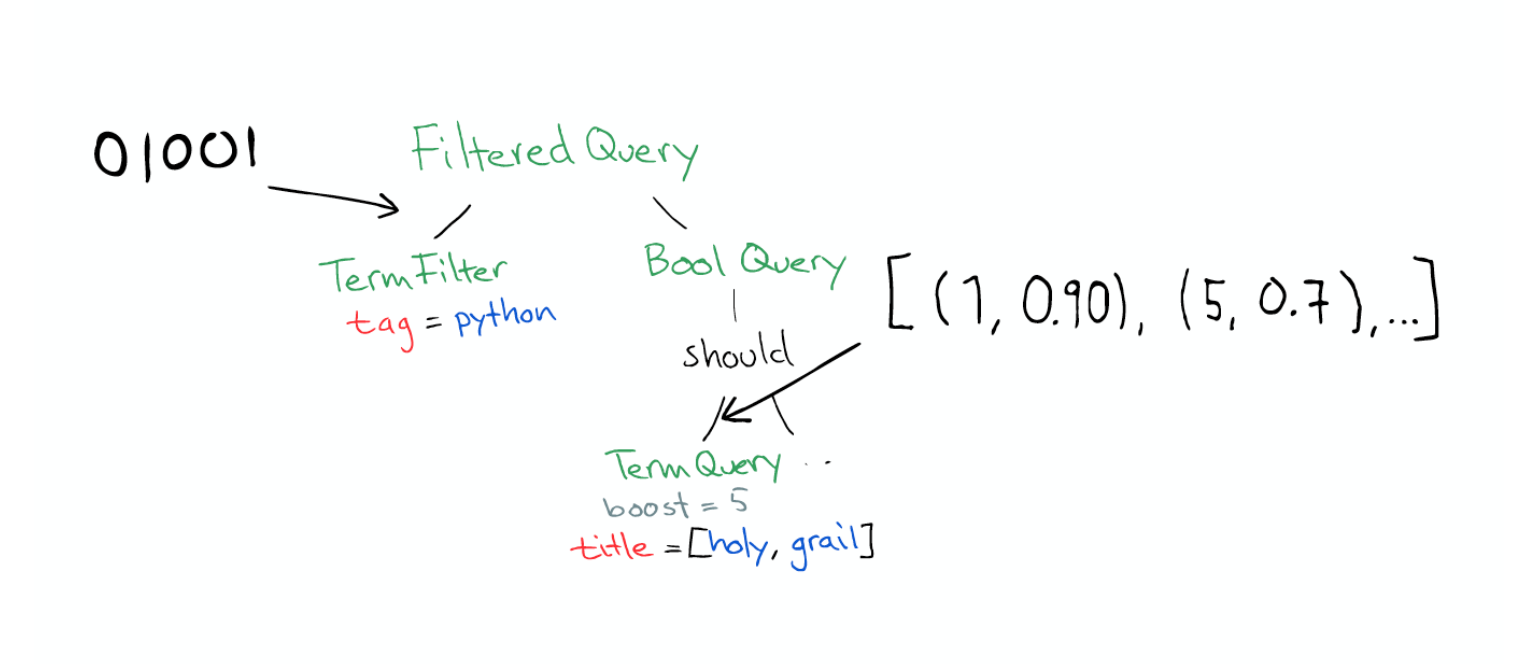 01001
Filtered Query
TermFilter
tag = python
Bool Query
[(1, 0.90), (5, 0.7), ...]
should
Term Query ..
boost = 5
title = [holy, grail]